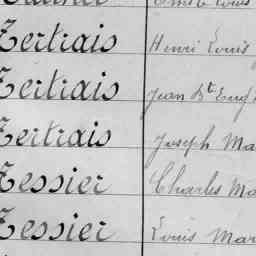 Tertrais Henri Louis
Tertrais Jean Bte Eug
Tertrais Joseph Ma
Tessier Charles Ma
Tessier Louis Mar